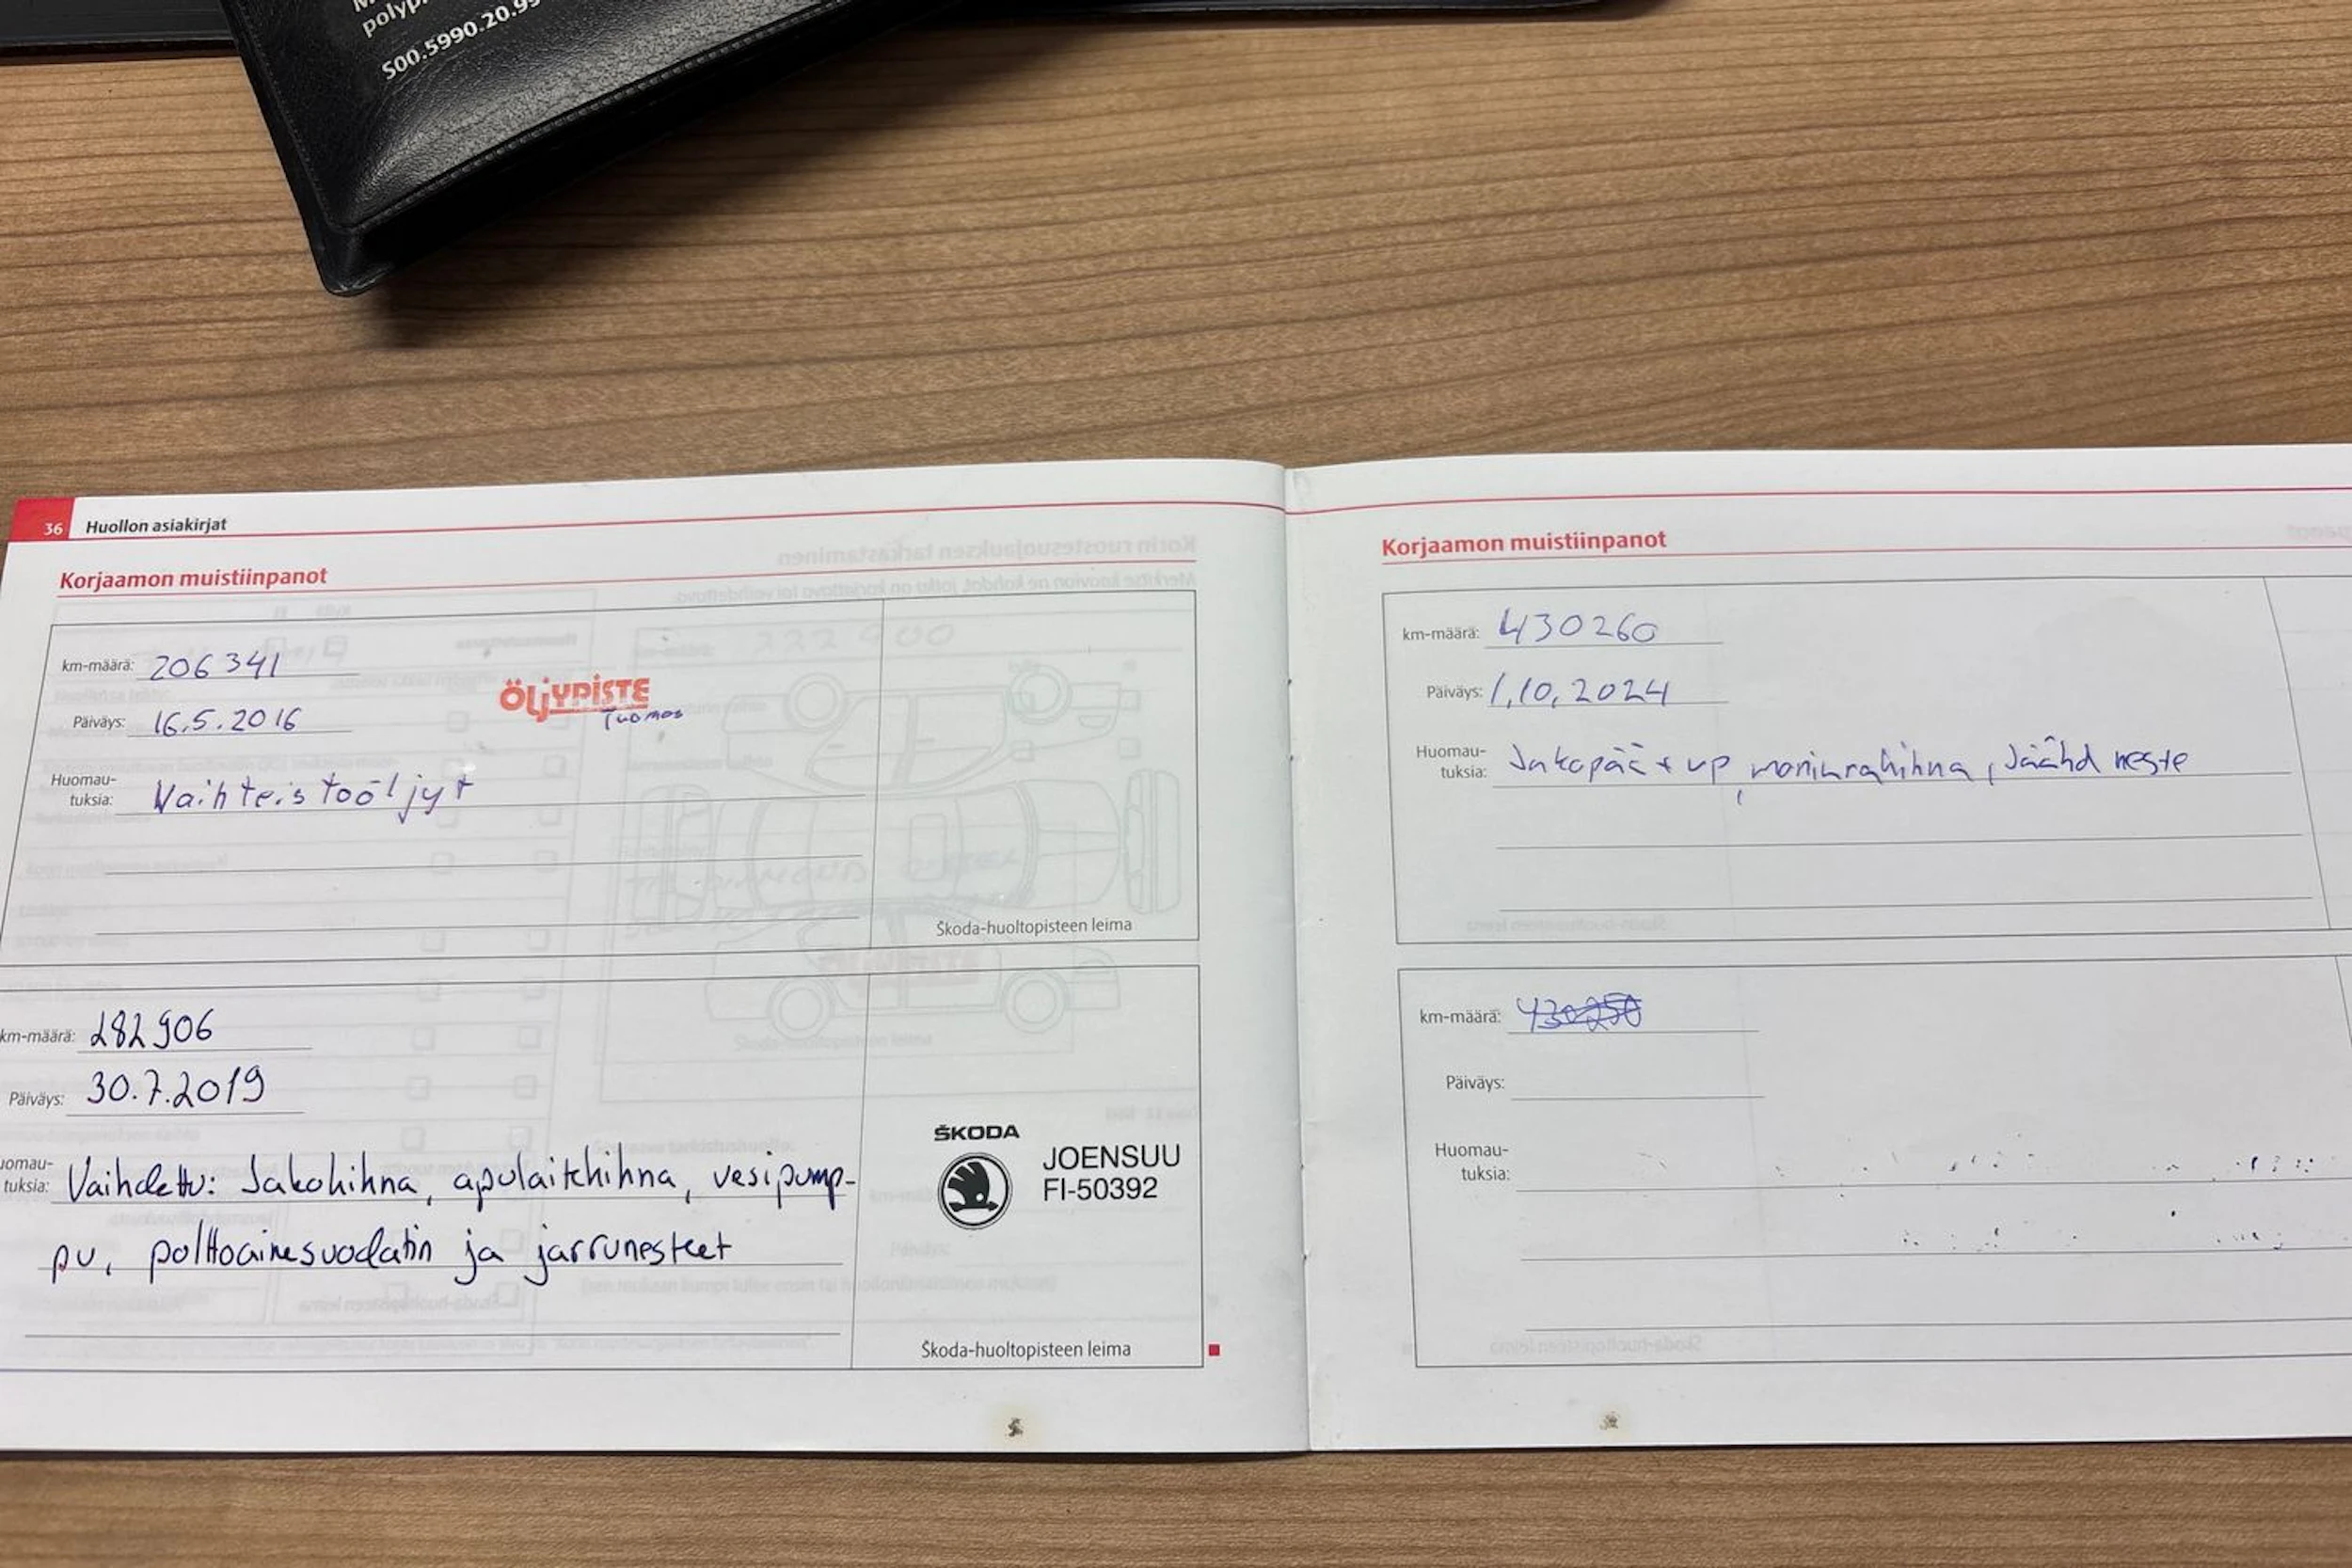 polyp
S00.5990.20.9
36 Huollon asiakirjat
Korjaamon muistiinpanot
km-määrä: 206 341
Päiväys: 16.5.2016
ÖLJYPISTE
Tuomas
Huomau-
tuksia: Vaihteistoöljyt
Škoda-huoltopisteen leima
km-määrä: 282 906
Päiväys: 30.7.2019
uomau-
tuksia: Vaihdettu: Jakohihna, apulaitehihna, vesipump-
pu, polttoainesuodatin ja jarrunesteet
ŠKODA
JOENSUU
FI-50392
Škoda-huoltopisteen leima
Korjaamon muistiinpanot
km-määrä: 430260
Päiväys: 1.10.2024
Huomau-
tuksia: Jakopää + vp, moniurahihna, Jäähd neste
km-määrä:
Päiväys:
Huomau-
tuksia: